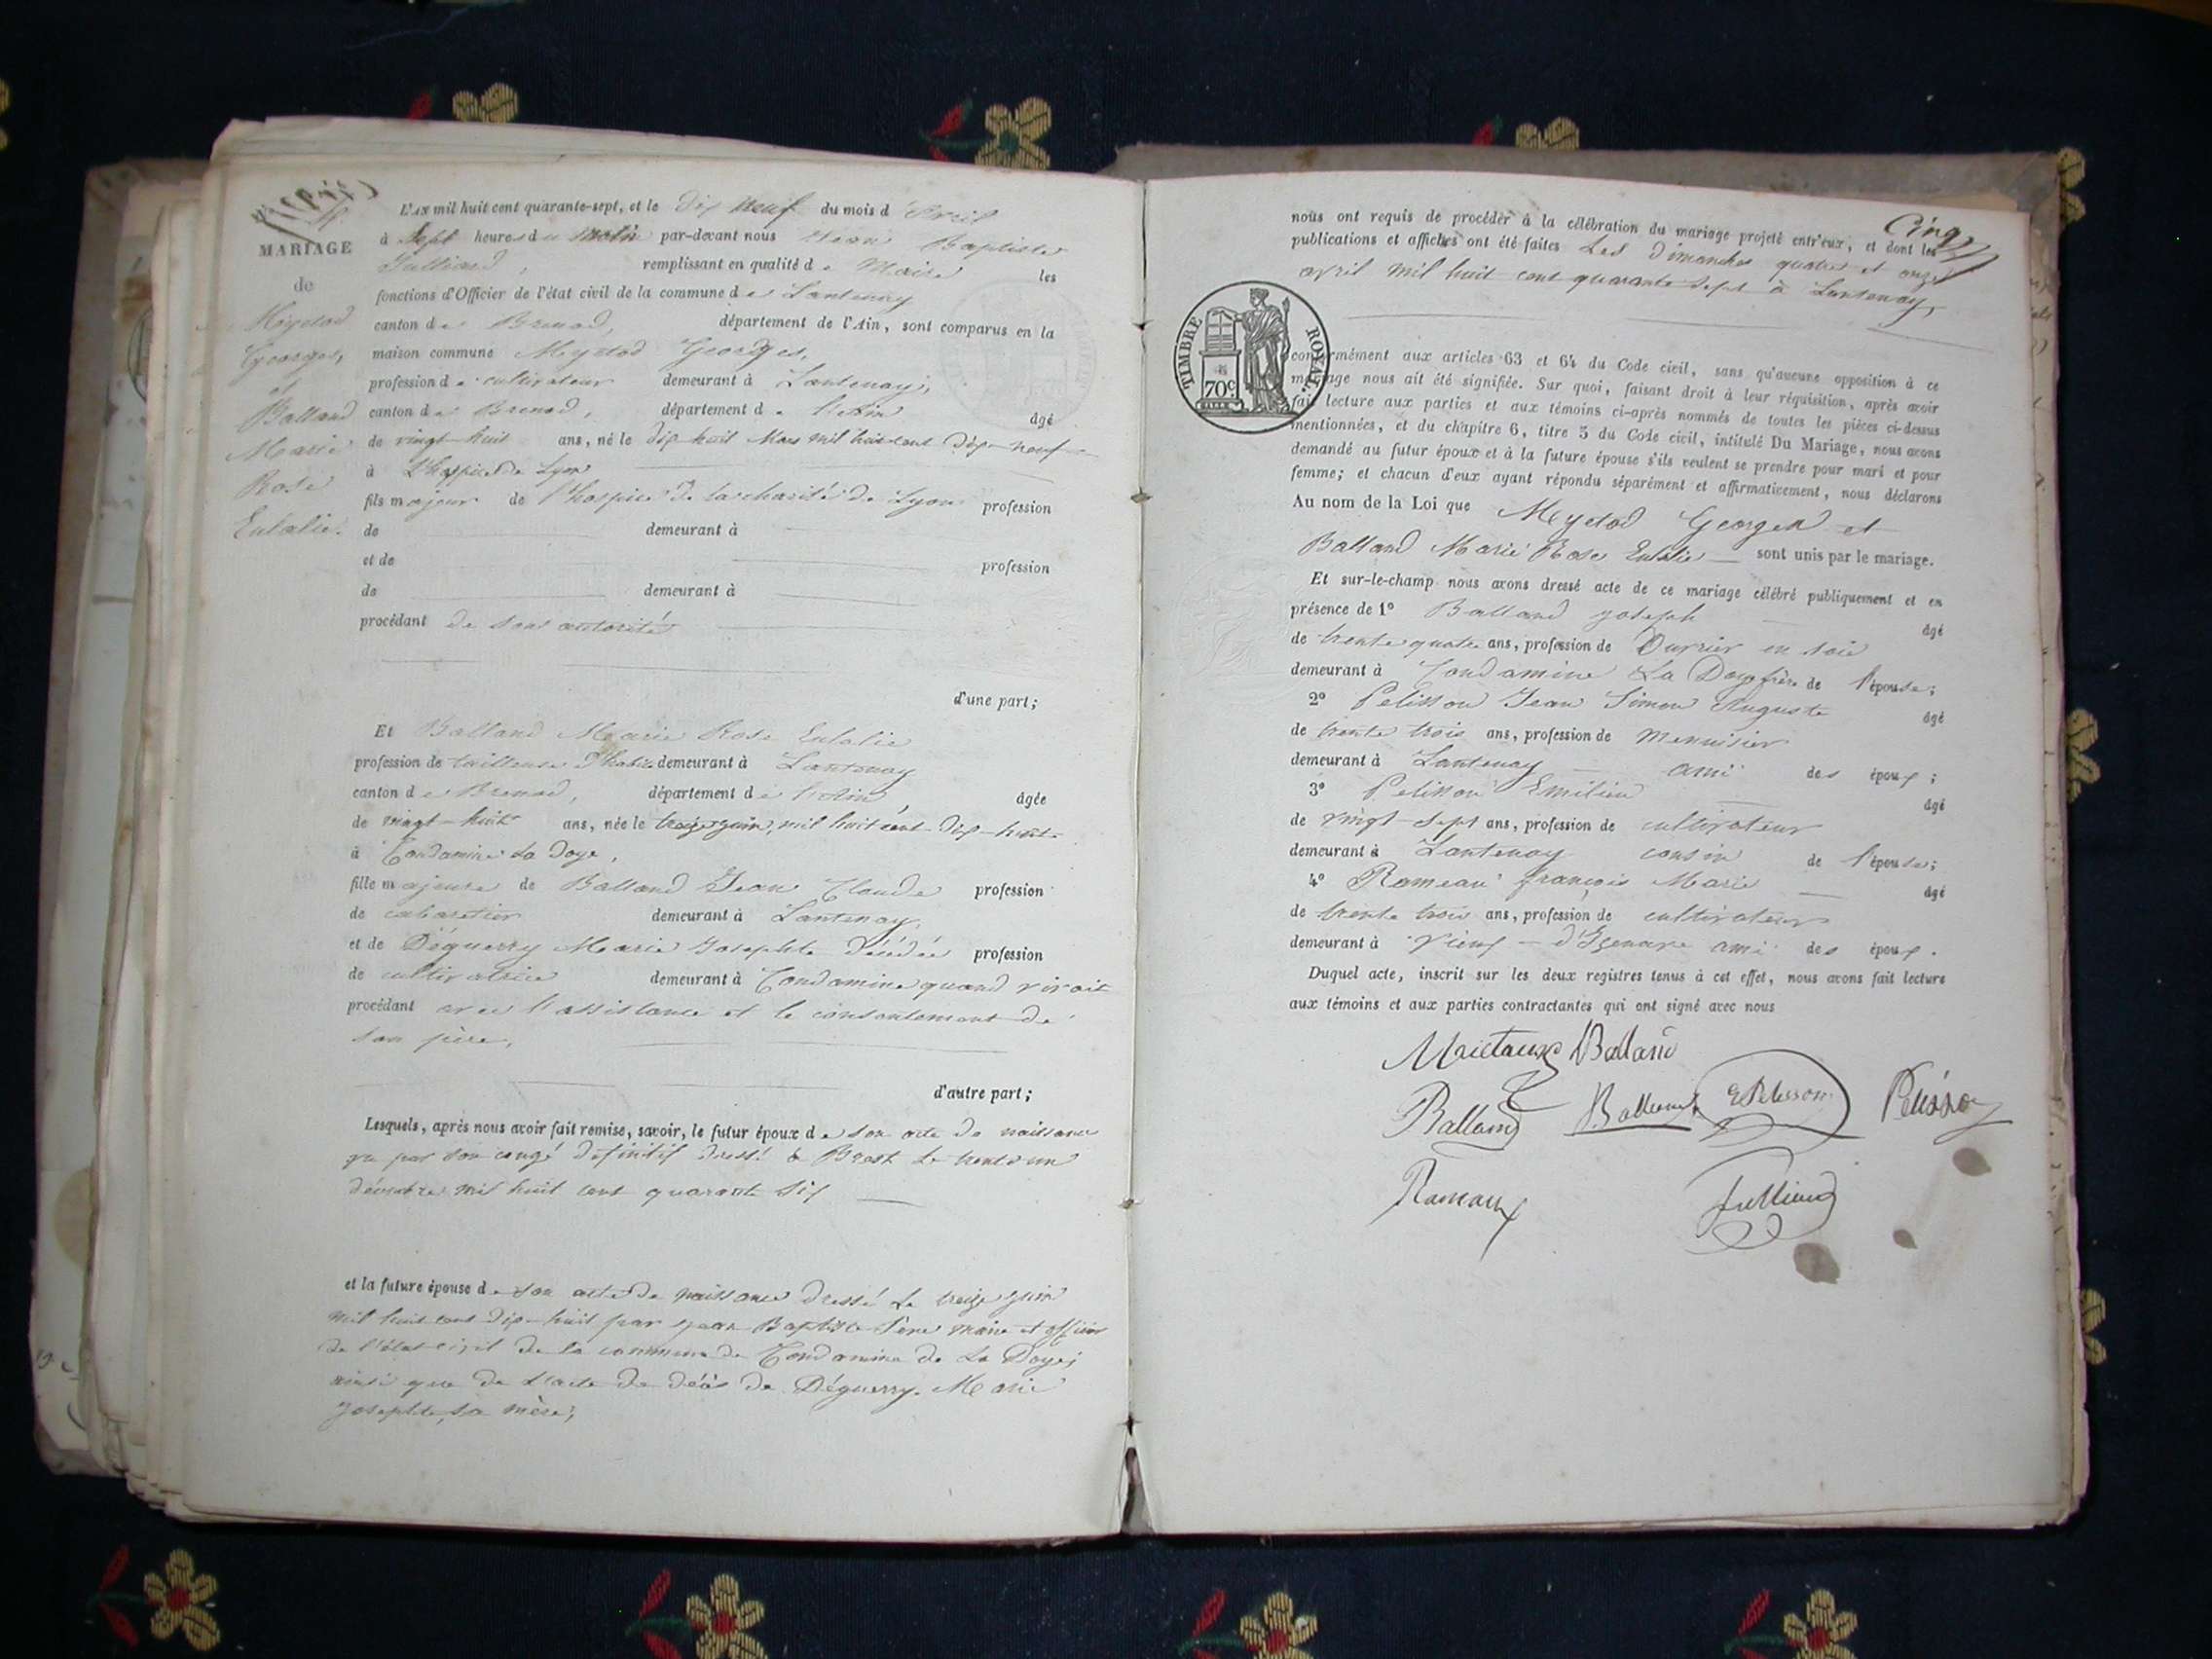 MARIAGE
de
Myetod
Georges,
et
Balland
Marie
Rose
Eulalie.
L'AN mil huit cent quarante-sept, et le dix neuf du mois d'avril
à sept heures du matin par-devant nous Jean Baptiste
Julliard, remplissant en qualité de Maire les
fonctions d'Officier de l'état civil de la commune de Lantenay
canton de Brenod, département de l'Ain, sont comparus en la
maison commune Myetod Georges,
profession de cultivateur demeurant à Lantenay,
canton de Brenod, département de l'Ain âgé
de vingt-huit ans, né le dix huit Mars mil huit cent dix-neuf
à l'hospice de Lyon
fils majeur de l'hospice de la charité de Lyon profession
de demeurant à
et de profession
de demeurant à
procédant de son autorité
d'une part;
Et Balland Marie Rose Eulalie
profession de tailleuse d'habits demeurant à Lantenay
canton de Brenod, département de l'Ain âgée
de vingt-huit ans, née le treize juin, mil huit cent dix-huit
à Condamine La Doye,
fille majeure de Balland Jean Claude profession
de cabaretier demeurant à Lantenay,
et de Déguerry Marie Josephte Désédée profession
de cultivatrice demeurant à Condamine quand vivait
procédant avec l'assistance et le consentement de
son père,
d'autre part;
Lesquels, après nous avoir fait remise, savoir, le futur époux de son acte de naissance
que par son congé définitif dressé à Brest le trente un
décembre mil huit cent quarante six
et la future épouse de son acte de naissance dressé le treize juin
mil huit cent dix-huit par Jean Baptiste maire et officier
de l'état civil de la commune de Condamine de La Doye;
ainsi que de l'acte de décès de Déguerry Marie
Josephte, sa mère;
Cinq
nous ont requis de procéder à la célébration du mariage projeté entr'eux, et dont les
publications et affiches ont été faites Les Dimanches quatre et onze
avril mil huit cent quarante sept à Lantenay,
TIMBRE ROYAL.
70c
conformément aux articles 63 et 64 du Code civil, sans qu'aucune opposition à ce
mariage nous ait été signifiée. Sur quoi, faisant droit à leur réquisition, après avoir
fait lecture aux parties et aux témoins ci-après nommés de toutes les pièces ci-dessus
mentionnées, et du chapitre 6, titre 5 du Code civil, intitulé Du Mariage, nous avons
demandé au futur époux et à la future épouse s'ils veulent se prendre pour mari et pour
femme; et chacun d'eux ayant répondu séparément et affirmativement, nous déclarons
Au nom de la Loi que Myetod Georges et
Balland Marie Rose Eulalie sont unis par le mariage.
Et sur-le-champ nous avons dressé acte de ce mariage célébré publiquement et en
présence de 1º Balland joseph âgé
de trente quatre ans, profession de Ouvrier en soie
demeurant à Condamine La Doye frère de l'épouse;
2º Pelisson Jean Simon Auguste âgé
de trente trois ans, profession de menuisier
demeurant à Lantenay ami des époux;
3º Pelisson Emilien âgé
de vingt-sept ans, profession de cultivateur
demeurant à Lantenay cousin de l'épouse;
4º Rameau françois Marie âgé
de trente trois ans, profession de cultivateur
demeurant à Vieux-d'Izenave ami des époux.
Duquel acte, inscrit sur les deux registres tenus à cet effet, nous avons fait lecture
aux témoins et aux parties contractantes qui ont signé avec nous
Mrietaux Balland
Balland Balland E Pelisson Pelisson
Rameau Julliard